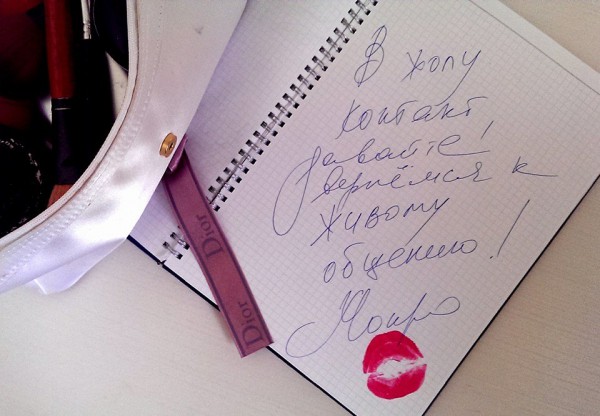 В жопу
контакт,
давайте
вернёмся к
живому
общению!
Монро
Dior
Dior